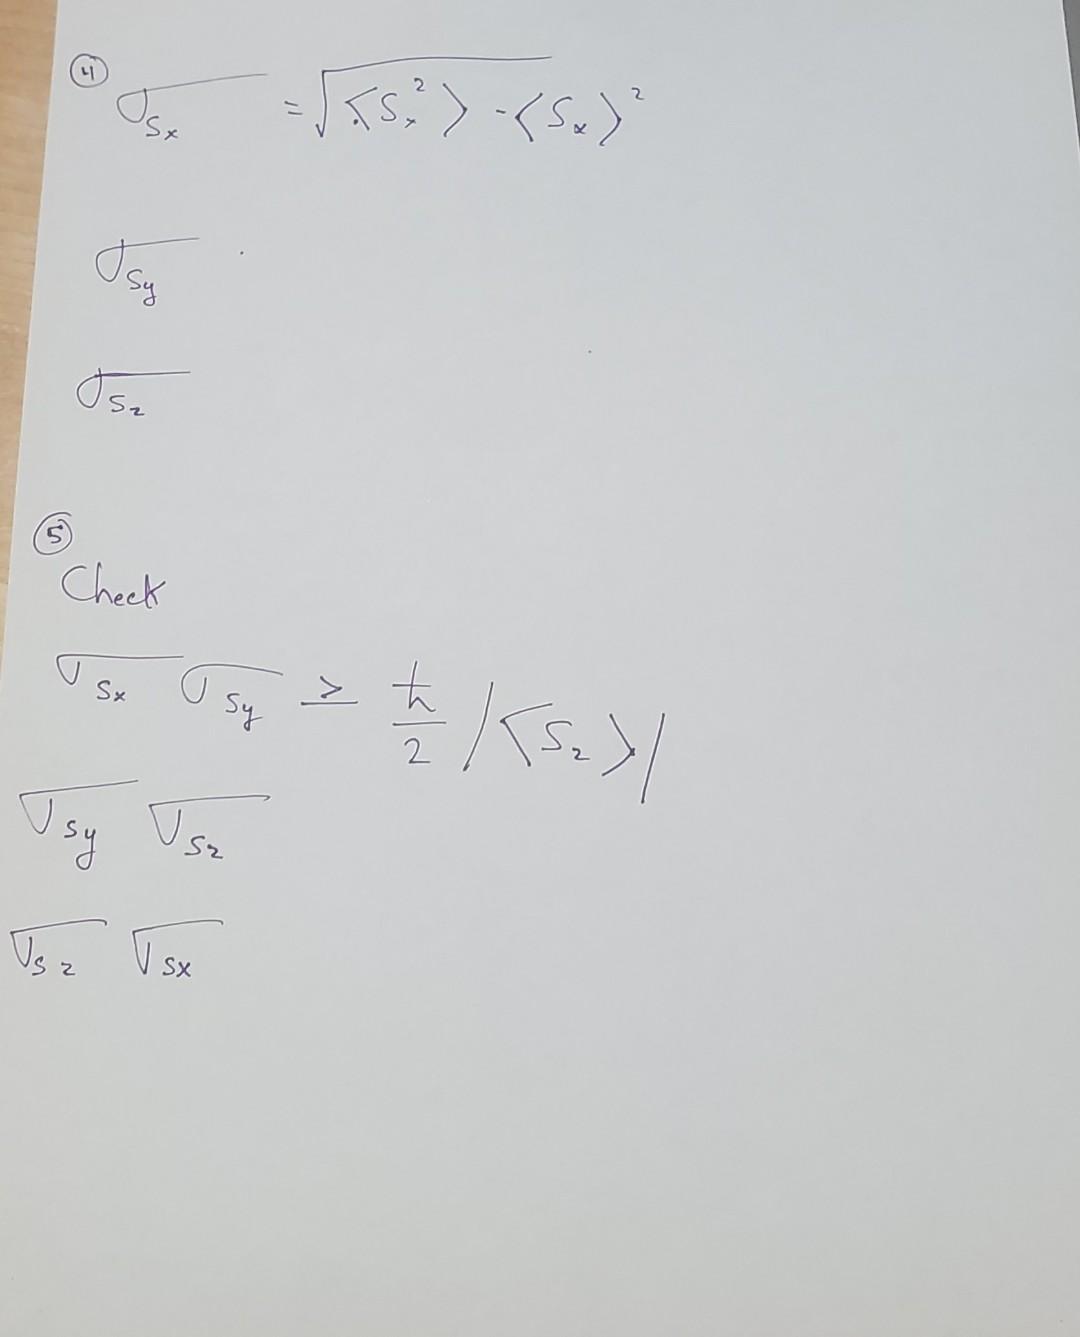 ④ σ_Sx = √⟨Sx²⟩ - ⟨Sx⟩²
σ_Sy
σ_Sz
⑤
Check
σ_Sx σ_Sy ≥ ħ/2 |⟨Sz⟩|
σ_Sy σ_Sz
σ_Sz σ_Sx